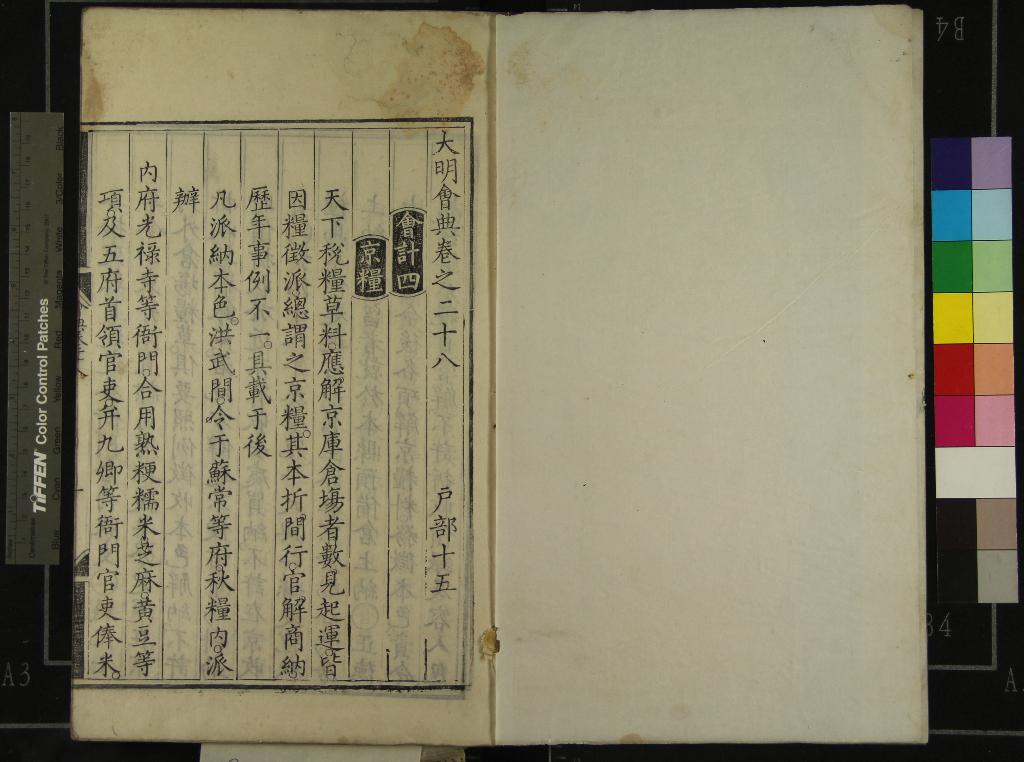 大明會典卷之二十八 戶部十五
會計四
京糧
天下稅糧草料應解京庫倉塲者數見起運皆
因糧徵派總謂之京糧其本折間行官解商納
歷年事例不一具載于後
凡派納本色洪武間令于蘇常等府秋糧內派
辦
內府光禄寺等衙門合用熟粳糯米芝麻黃豆等
項及五府首領官吏幷九卿等衙門官吏俸米
TIFFEN Color Control Patches
B4
B4
A3
A